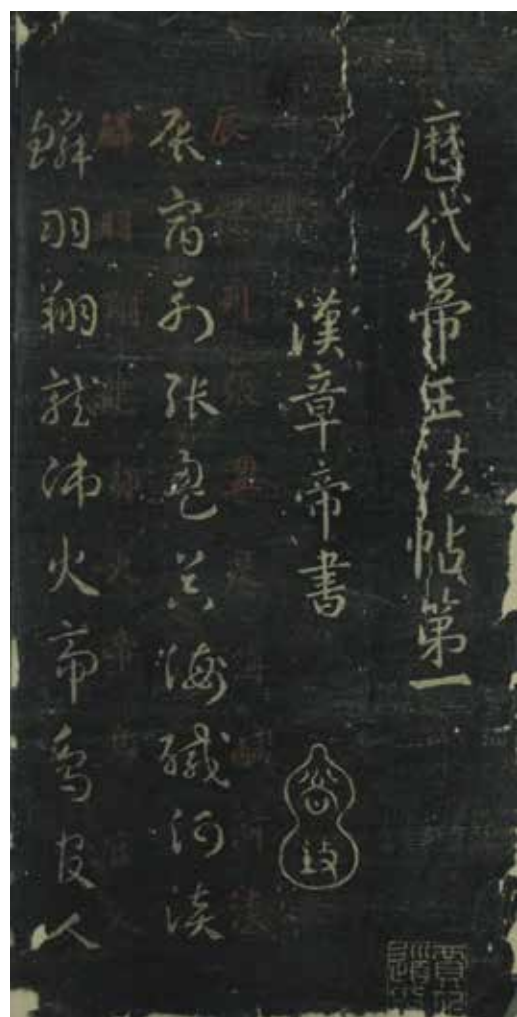 歷代帝王法帖第一
漢章帝書
辰宿列張盈昃海鹹河淡
鱗羽翔龍師火帝鳥官人